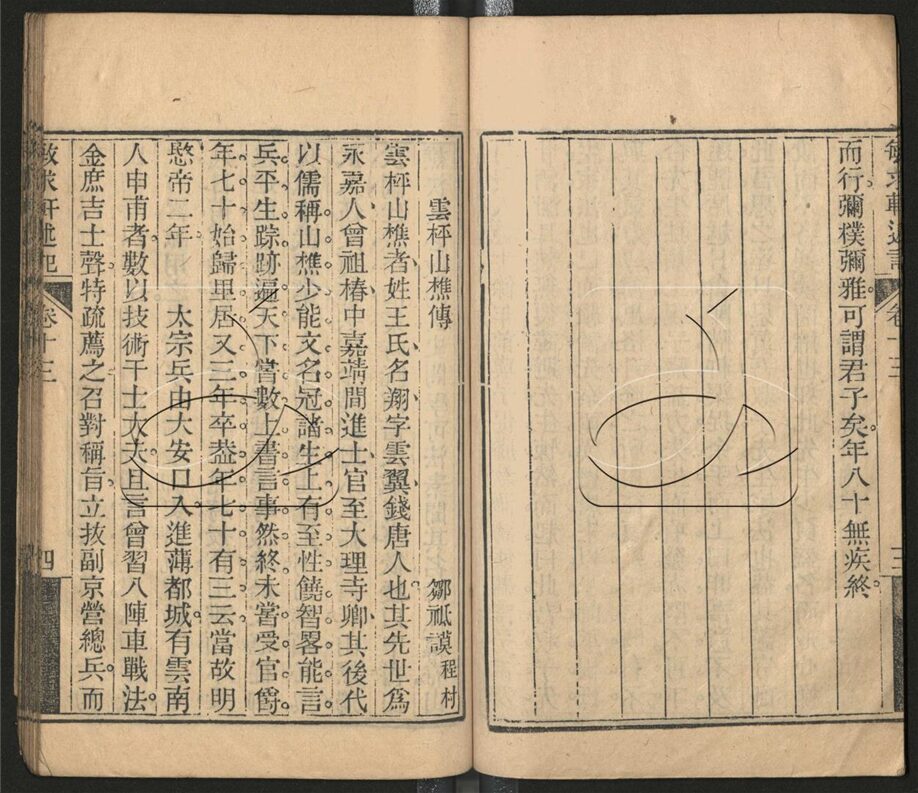 敏求軒述記
卷十三
三
而行彌樸彌雅。可謂君子矣。年八十無疾終
雲枰山樵傳
鄒祗謨 程村
雲枰山樵者。姓王氏。名翔。字雲翼。錢唐人也。其先世爲
永嘉人。曾祖椿。中嘉靖間進士。官至大理寺卿。其後代
以儒稱。山樵少能文。名冠諸生。上有至性。饒智畧。能言
兵。平生踪跡遍天下。嘗數上書言事。然終未嘗受官爵。
年七十。始歸里居。又三年卒。葢年七十有三云。當故明
愍帝二年。 太宗兵由大安口入。進薄都城。有雲南
人申甫者。數以技術干士大夫。且言曾習八陣車戰法。
金庶吉士聲。特疏薦之。召對稱旨。立抜副京營總兵。而
敏求軒述記
卷十三
四